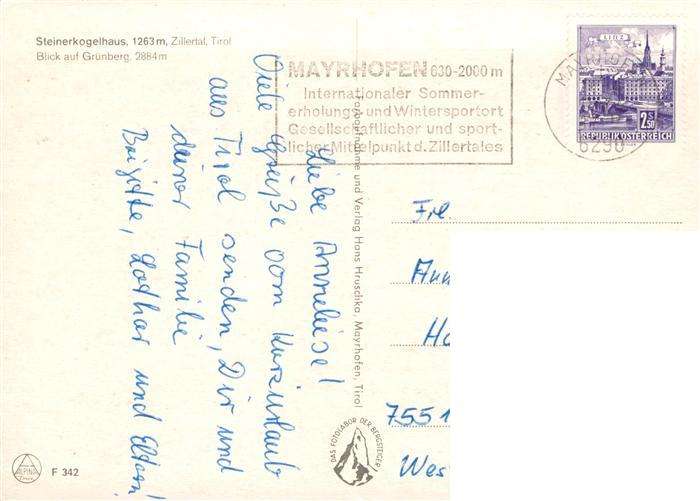 Steinerkogelhaus, 1263 m, Zillertal, Tirol
Blick auf Grünberg. 2884 m
MAYRHOFEN 630-2000 m
Internationaler Sommer-
erholungs und Wintersportort
Gesellschaftlicher und sport-
licher Mittelpunkt d. Zillertales
LINZ
2.50
REPUBLIK ÖSTERREICH
MAYRHOFEN
6290
Liebe Anneliese!
Viele Grüße vom Kurzurlaub
aus Tirol senden, Dir und
deiner Familie
Brigitte, Lothar und Eltern!
Farbaufnahme und Verlag Hans Hruschka, Mayrhofen, Tirol
Frl.
Ann
Ha
7551
Wes
DAS FOTOLABOR DER BERGSTEIGER
ALPINA
F 342